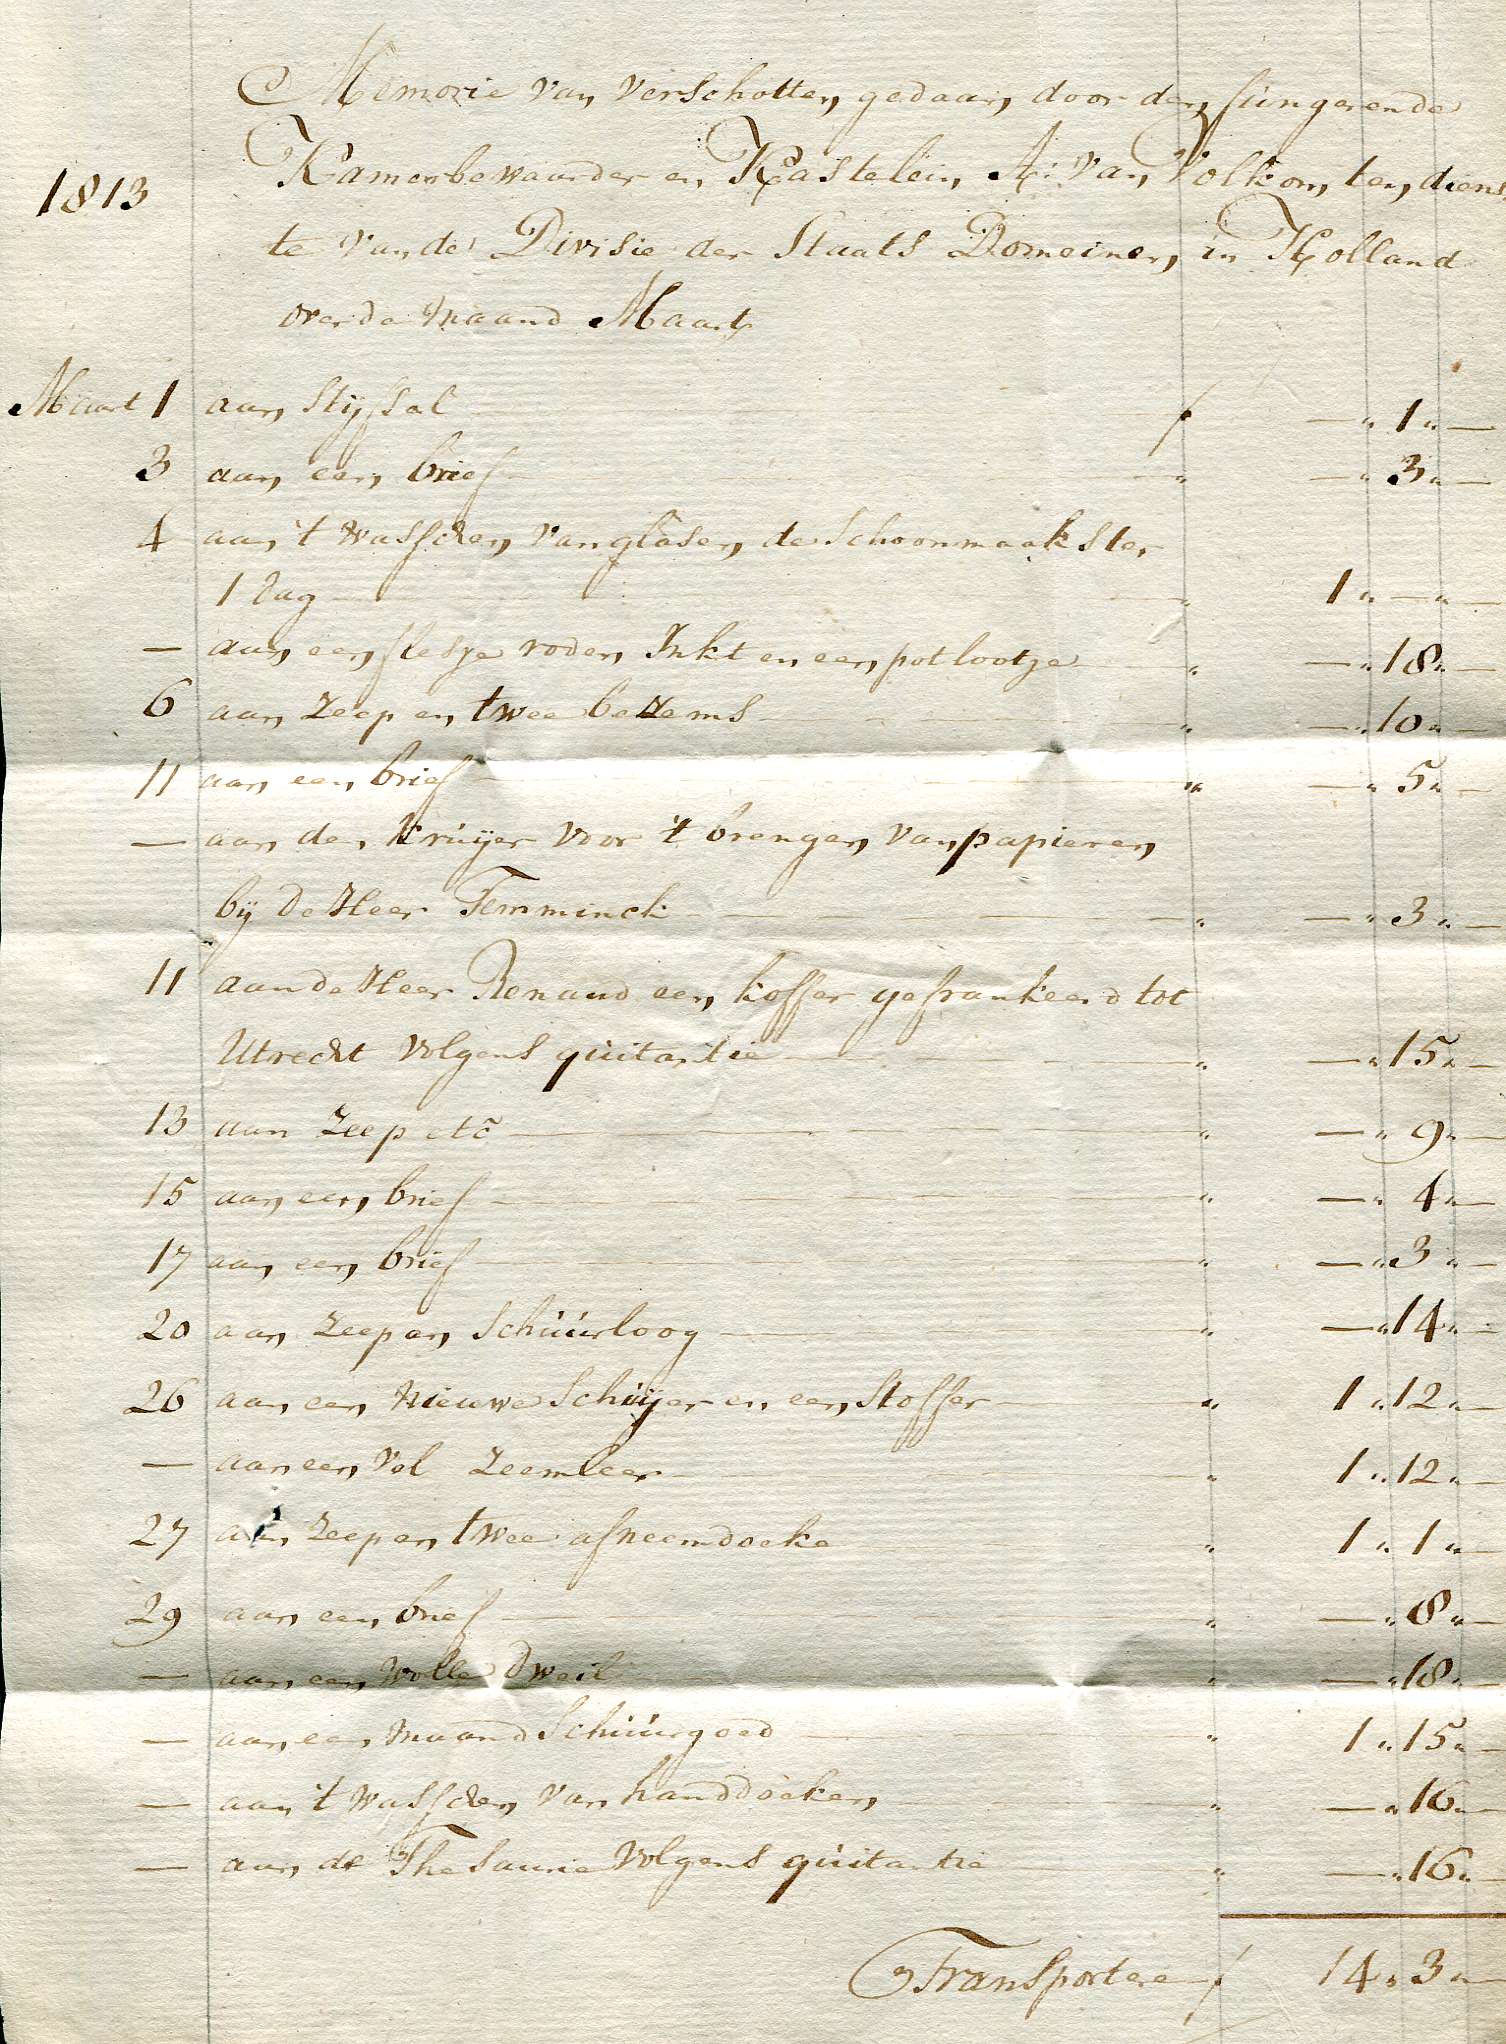 Memorie van verschotten gedaan door den fungerende
1813 Kamerbewaarder en Kastelein A: van Volkom ten diens
te van de Divisie der Staats Domeinen in Holland
over de maand Maart
Maart 1 aan Stijfsel f — " 1 " —
3 aan een brief " — " 3 " —
4 aan 't wasschen van glasen de Schoonmaakster
1 dag " 1 " — " —
— aan een flesje roden Inkt en een potlootje " — " 18 " —
6 aan Zeep en twee bezems " — " 10 " —
11 aan een brief " — " 5 " —
— aan den kruijer voor 't brengen van papieren
bij de Heer Temminck " — " 3 " —
11 aan de Heer Renaud een koffer gefrankeerd tot
Utrecht volgens quitantie " — " 15 " —
13 aan Zeep etc " — " 9 " —
15 aan een brief " — " 4 " —
17 aan een brief " — " 3 " —
20 aan Zeep en Schuurloog " — " 14 " —
26 aan een nieuwe Schuijer en een Stoffer " 1 " 12 " —
— aan een Vel Zeemleer " 1 " 12 " —
27 aan Zeep en twee afneemdoeke " 1 " 1 " —
29 aan een brief " — " 8 " —
— aan een wolle dweil " — " 18 " —
— aan een maand Schuurgoed " 1 " 15 " —
— aan 't wasschen van handdoeken " — " 16 " —
— aan de Thesaurie volgens quitantie " — " 16 " —
Transportere f 14 " 3 " —